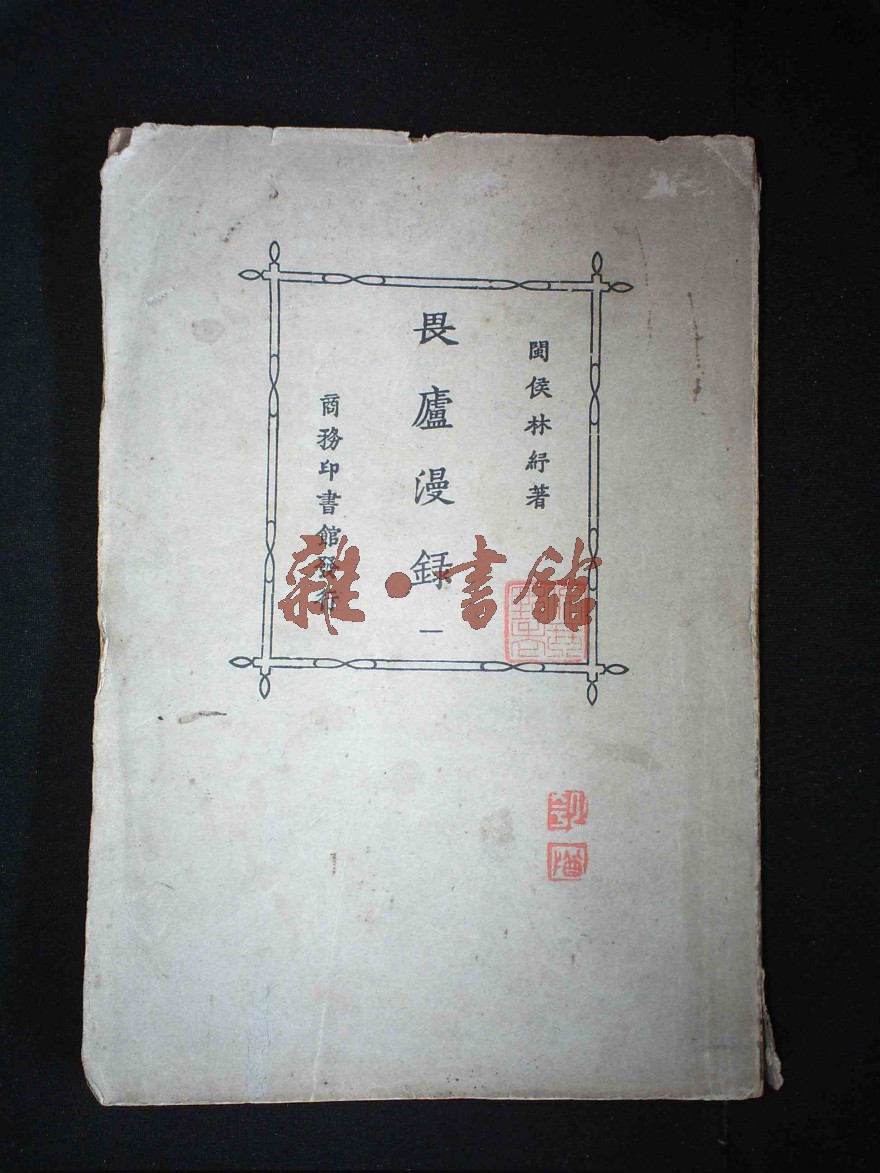 閩侯林紓著
畏廬漫錄
一
商務印書館發行
雜·書館